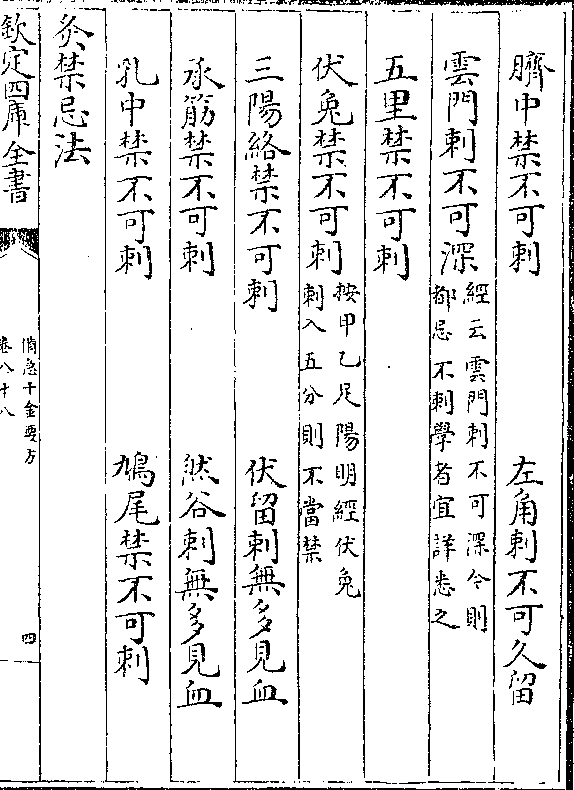 臍中禁不可刺　左角刺不可久留
雲門刺不可深經云雲門刺不可深今則都忌不刺學者宜詳悉之
五里禁不可刺
伏兔禁不可刺按甲乙足陽明經伏兔刺入五分則不當禁
三陽絡禁不可刺　伏留刺無多見血
承筋禁不可刺　然谷刺無多見血
乳中禁不可刺　鳩尾禁不可刺
灸禁忌法
欽定四庫全書
備急千金要方
卷八十八
四